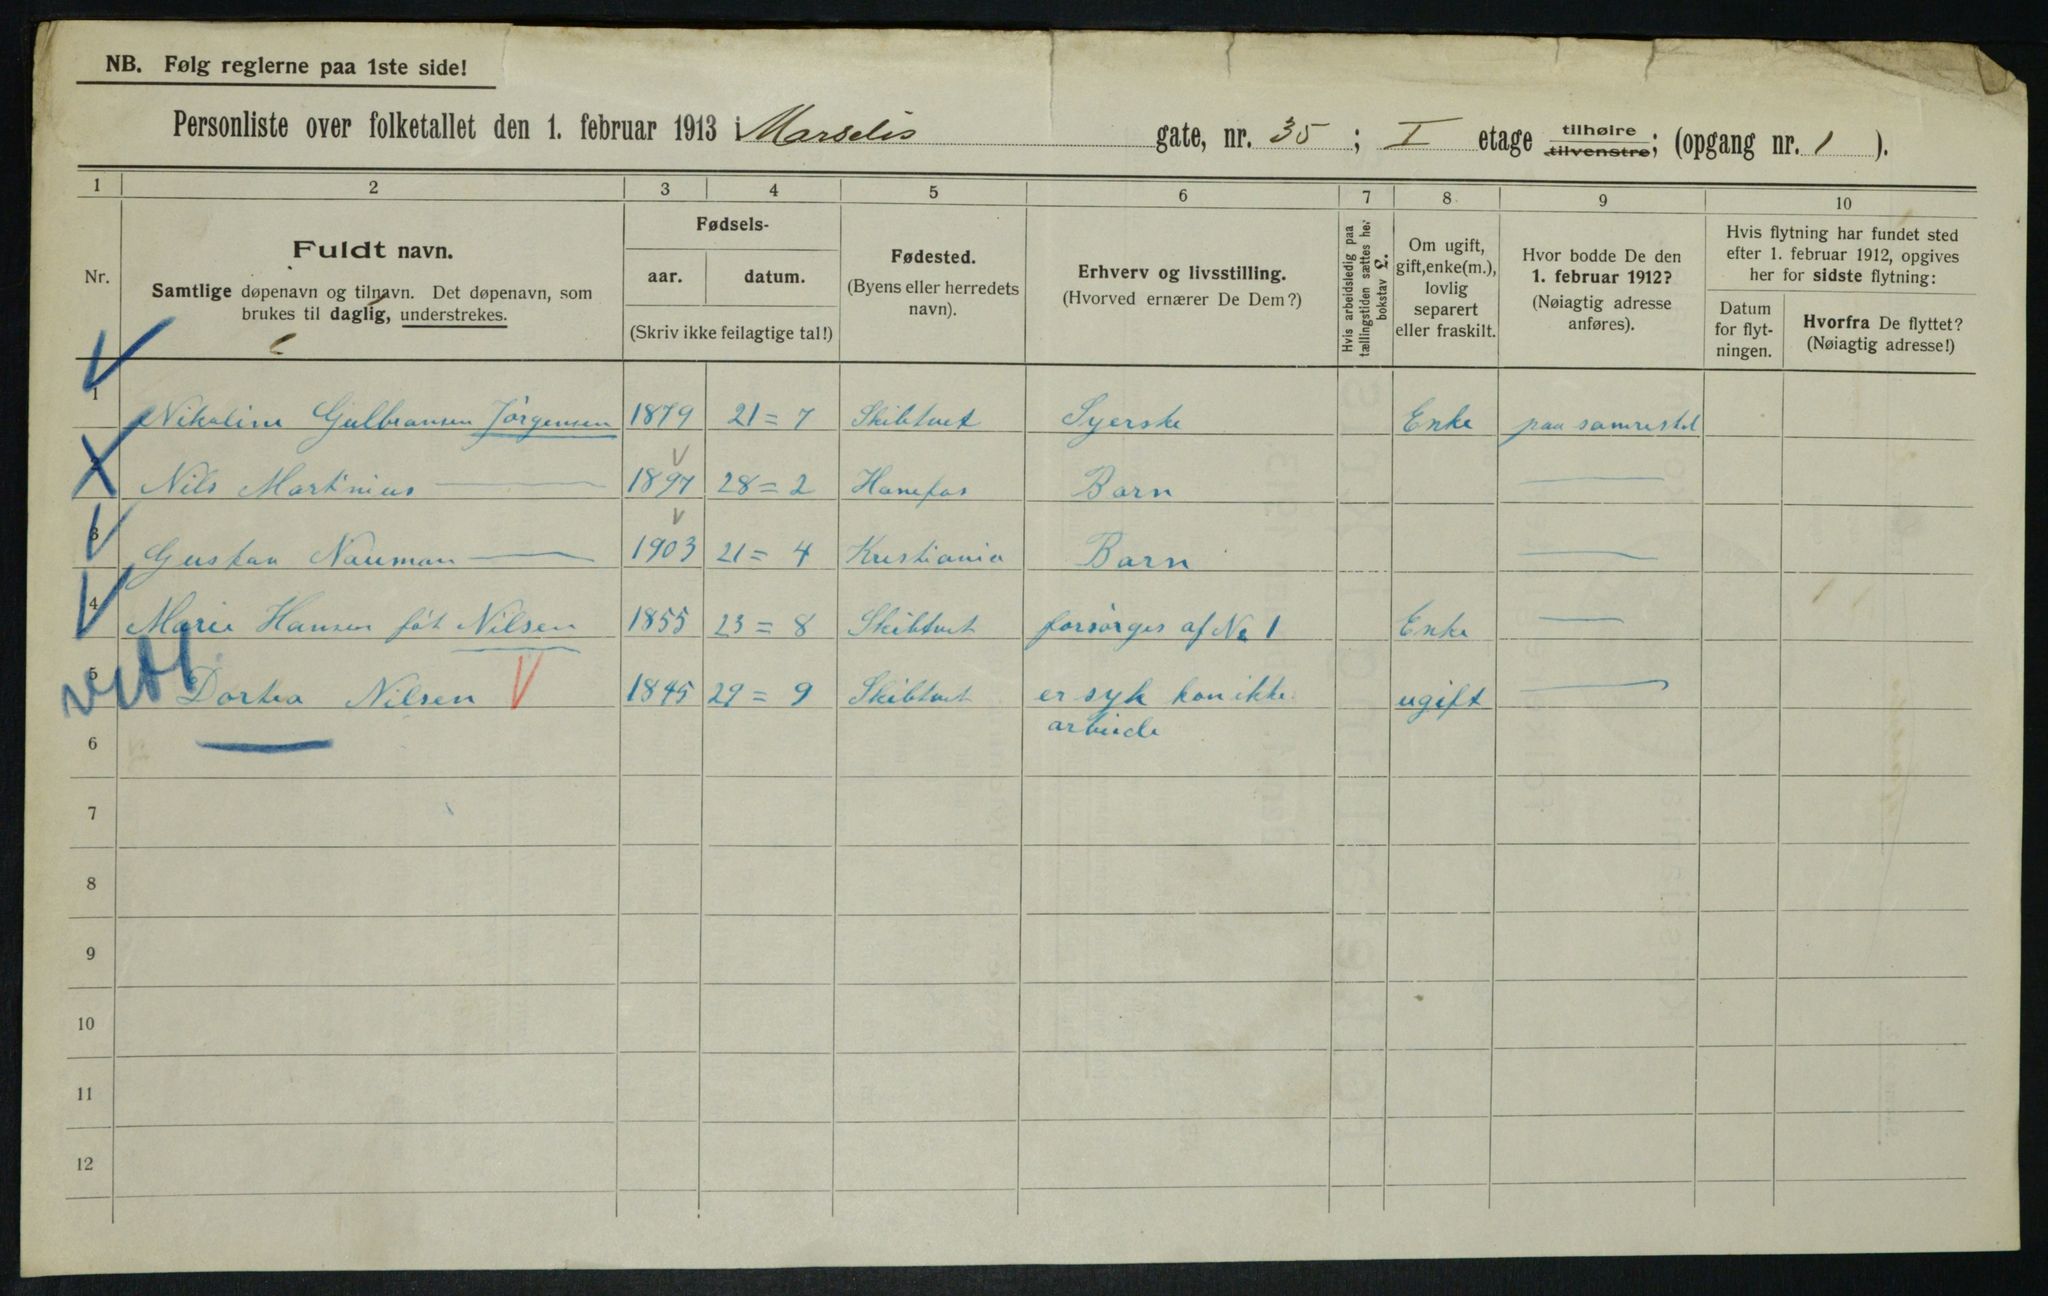 NB. Følg reglerne paa 1ste side!
Personliste over folketallet den 1. februar 1913 i Marselis gate, nr. 35 ; I etage tilhøire tilvenstre; (opgang nr. 1 ).
1 2 3 4 5 6 7 8 9 10
Nr.
Fuldt navn.
Samtlige døpenavn og tilnavn. Det døpenavn, som
brukes til daglig, understrekes.
Fødsels-
aar. datum.
(Skriv ikke feilagtige tal!)
Fødested.
(Byens eller herredets
navn).
Erhverv og livsstilling.
(Hvorved ernærer De Dem?)
Hvis arbeidsledig paa
tællingstiden sættes her
bokstav £.
Om ugift,
gift, enke(m.),
lovlig
separert
eller fraskilt.
Hvor bodde De den
1. februar 1912?
(Nøiagtig adresse
anføres).
Hvis flytning har fundet sted
efter 1. februar 1912, opgives
her for sidste flytning:
Datum
for flyt-
ningen.
Hvorfra De flyttet?
(Nøiagtig adresse!)
1 Nikoline Gulbransen Jörgensen 1879 21=7 Skibtvet Syerske Enke paa samested
2 Nils Martinius — 1897 28=2 Hanefos Barn —
3 Gustav Nauman — 1903 21=4 Kristiania Barn —
4 Marie Hansen föt Nilsen 1855 23=8 Skibtvet forsörges af No 1 Enke —
5 Dortea Nilsen 1845 29=9 Skibtvet er syk kan ikke ugift —
arbeide
6
7
8
9
10
11
12